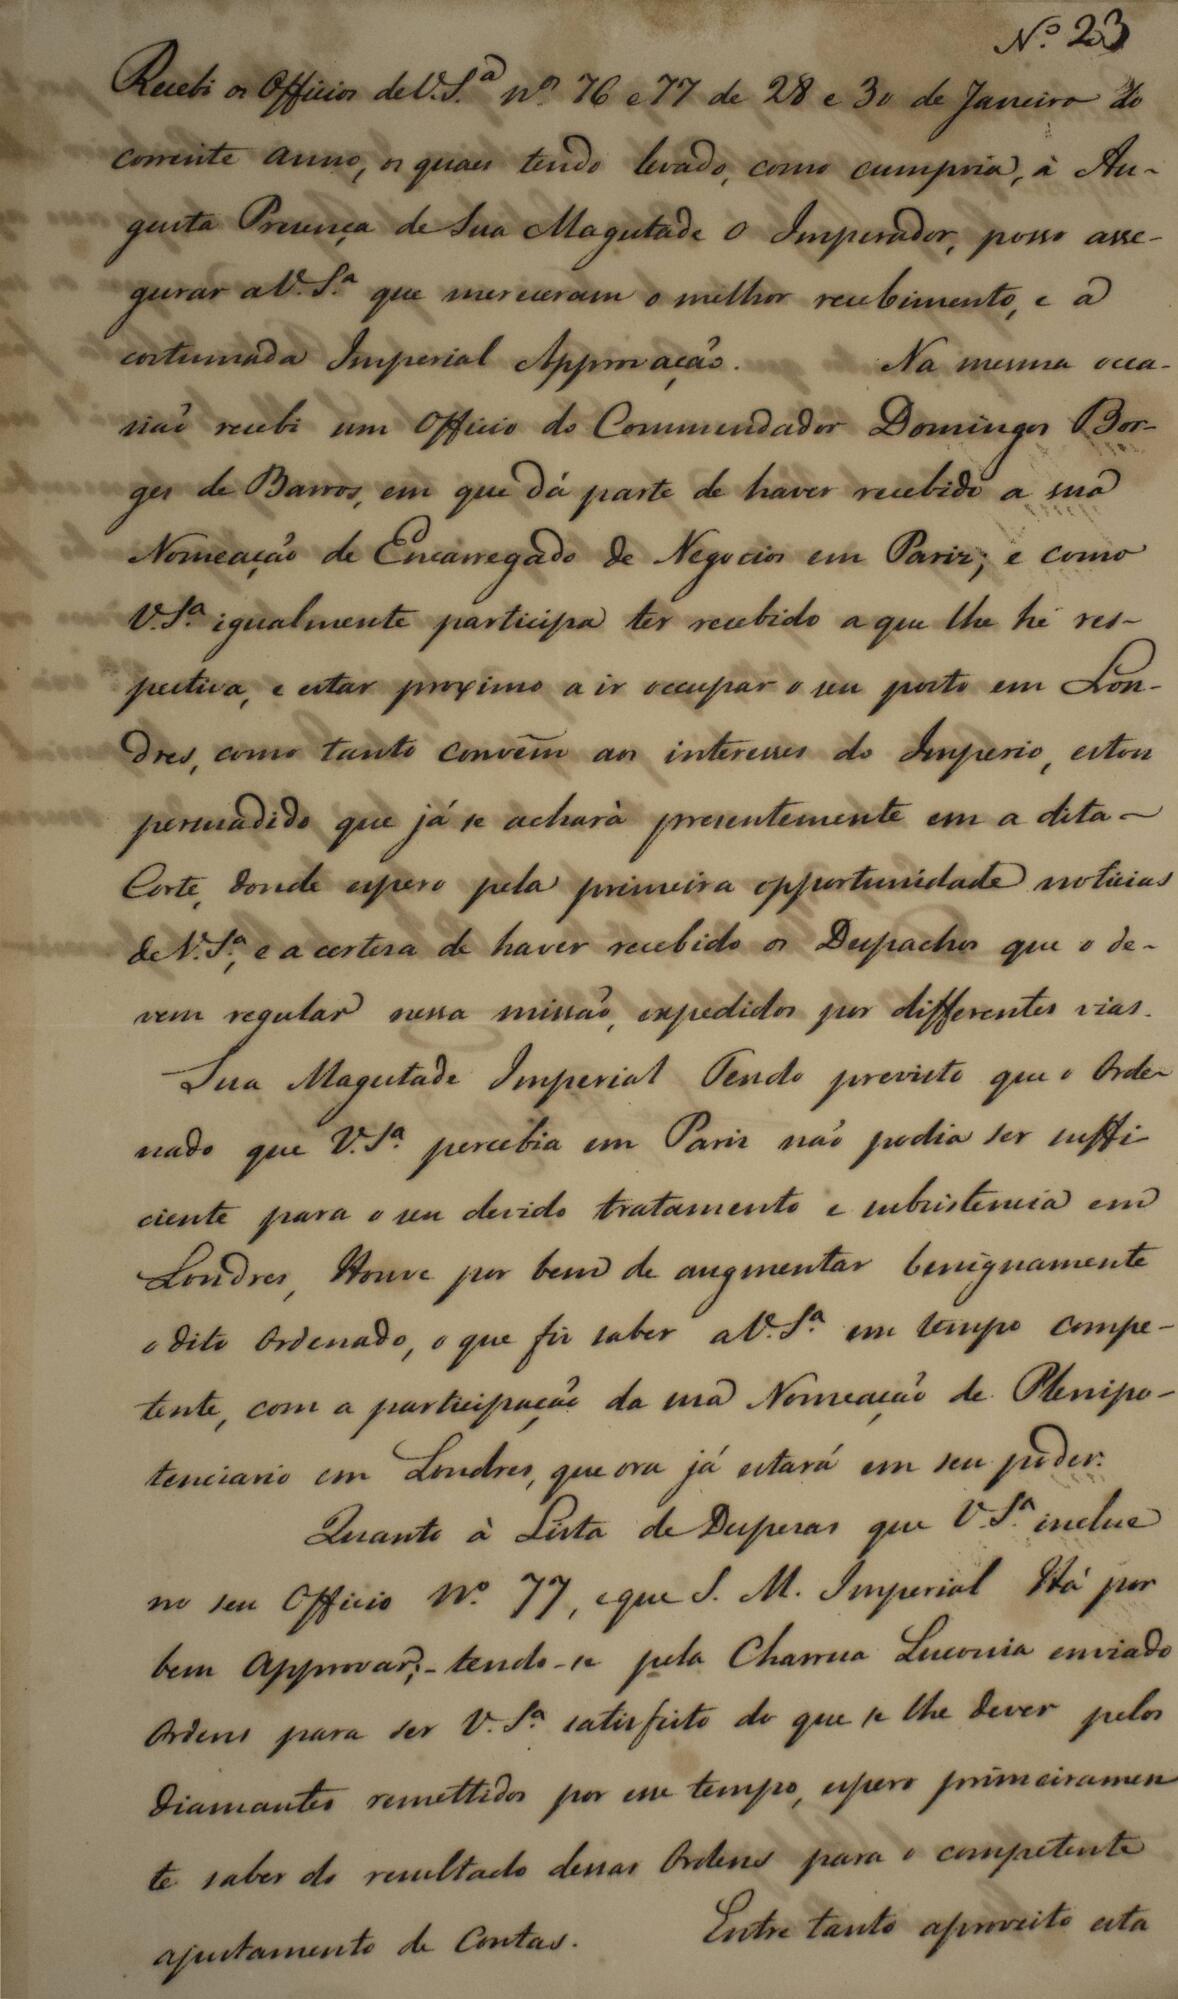 Nº 23
Recebi os Officios de V. S.ª nº 76 e 77 de 28 e 30 de Janeiro do
corrente anno, os quaes tendo levado, como cumpria, à Au-
gusta Presença de Sua Magestade O Imperador, posso asse-
gurar a V. S.ª que mereceram o melhor recebimento, e a
costumada Imperial Approvação. Na mesma occa-
sião recebi um Officio do Commendador Domingos Bor-
ges de Barros, em que dá parte de haver recebido a sua
Nomeação de Encarregado de Negocios em Pariz; e como
V. S.ª igualmente participa ter recebido a que lhe hé res-
pectiva, e estar proximo a ir occupar o seu posto em Lon-
dres, como tanto convêm aos interesses do Imperio, estou
persuadido que já se achará presentemente em a dita
Corte, donde espero pela primeira opportunidade noticias
de V. S.ª, e a certesa de haver recebido os Despachos que o de-
vem regular nessa missão, expedidos por differentes vias.
Sua Magestade Imperial Tendo previsto que o Orde-
nado que V. S.ª percebia em Pariz não podia ser suffi
ciente para o seu devido tratamento e subsistencia em
Londres, Houve por bem de augmentar benignamente
o dito Ordenado, o que fiz saber a V. S.ª em tempo compe-
tente, com a participação da sua Nomeação de Plenipo-
tenciario em Londres, que ora já estará em seu poder.
Quanto à Lista de Despesas que V. S.ª inclue
no seu Officio Nº 77, e que S. M. Imperial Há por
bem Approvar; - tendo-se pela Charrua Luconia enviado
Ordens para ser V. S.ª satisfeito do que se lhe dever pelos
diamantes remettidos por esse tempo, espero primeiramen
te saber do resultado dessas Ordens para o competente
ajustamento de Contas. Entre tanto aproveito esta